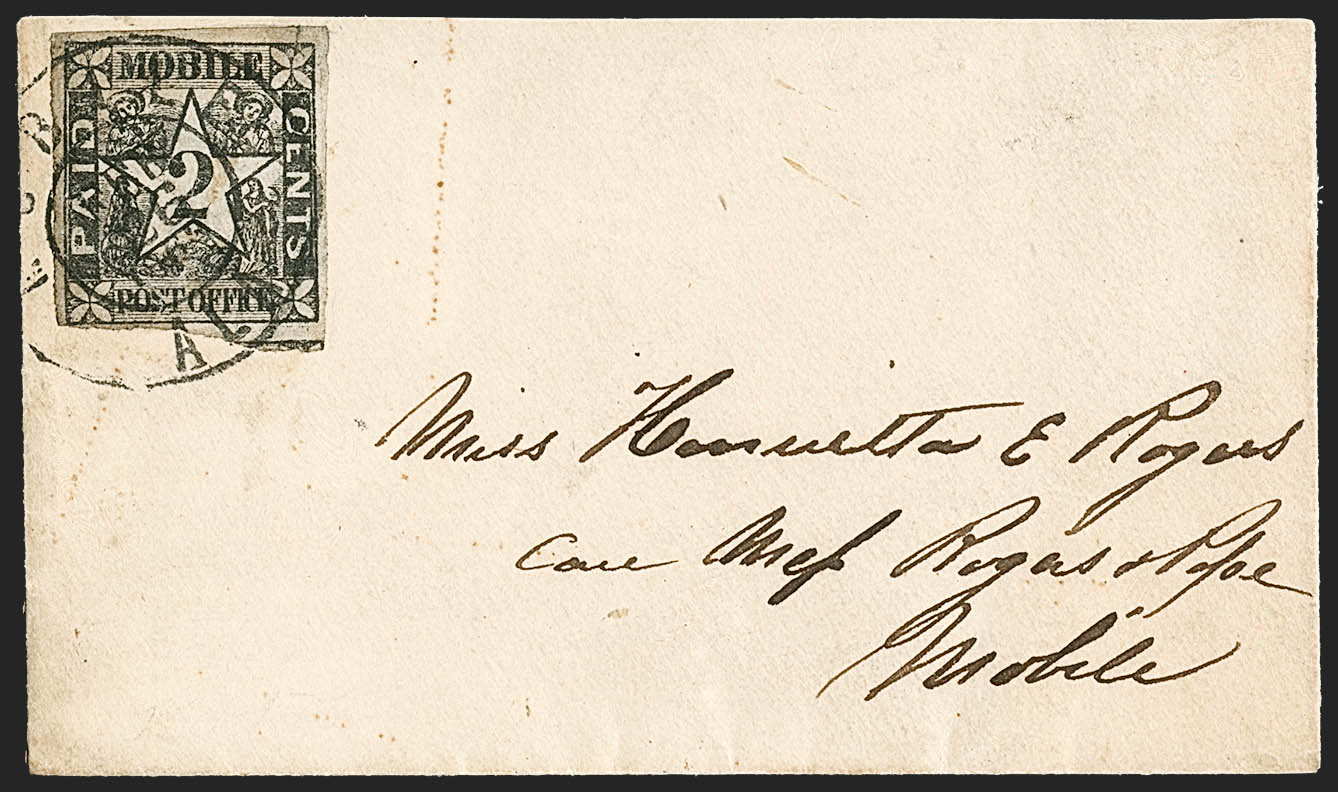 MOBILE
PAID
2
CENTS
POST OFFICE
AL
Miss Henrietta E Rogers
Care Mess Rogers & Pope
Mobile